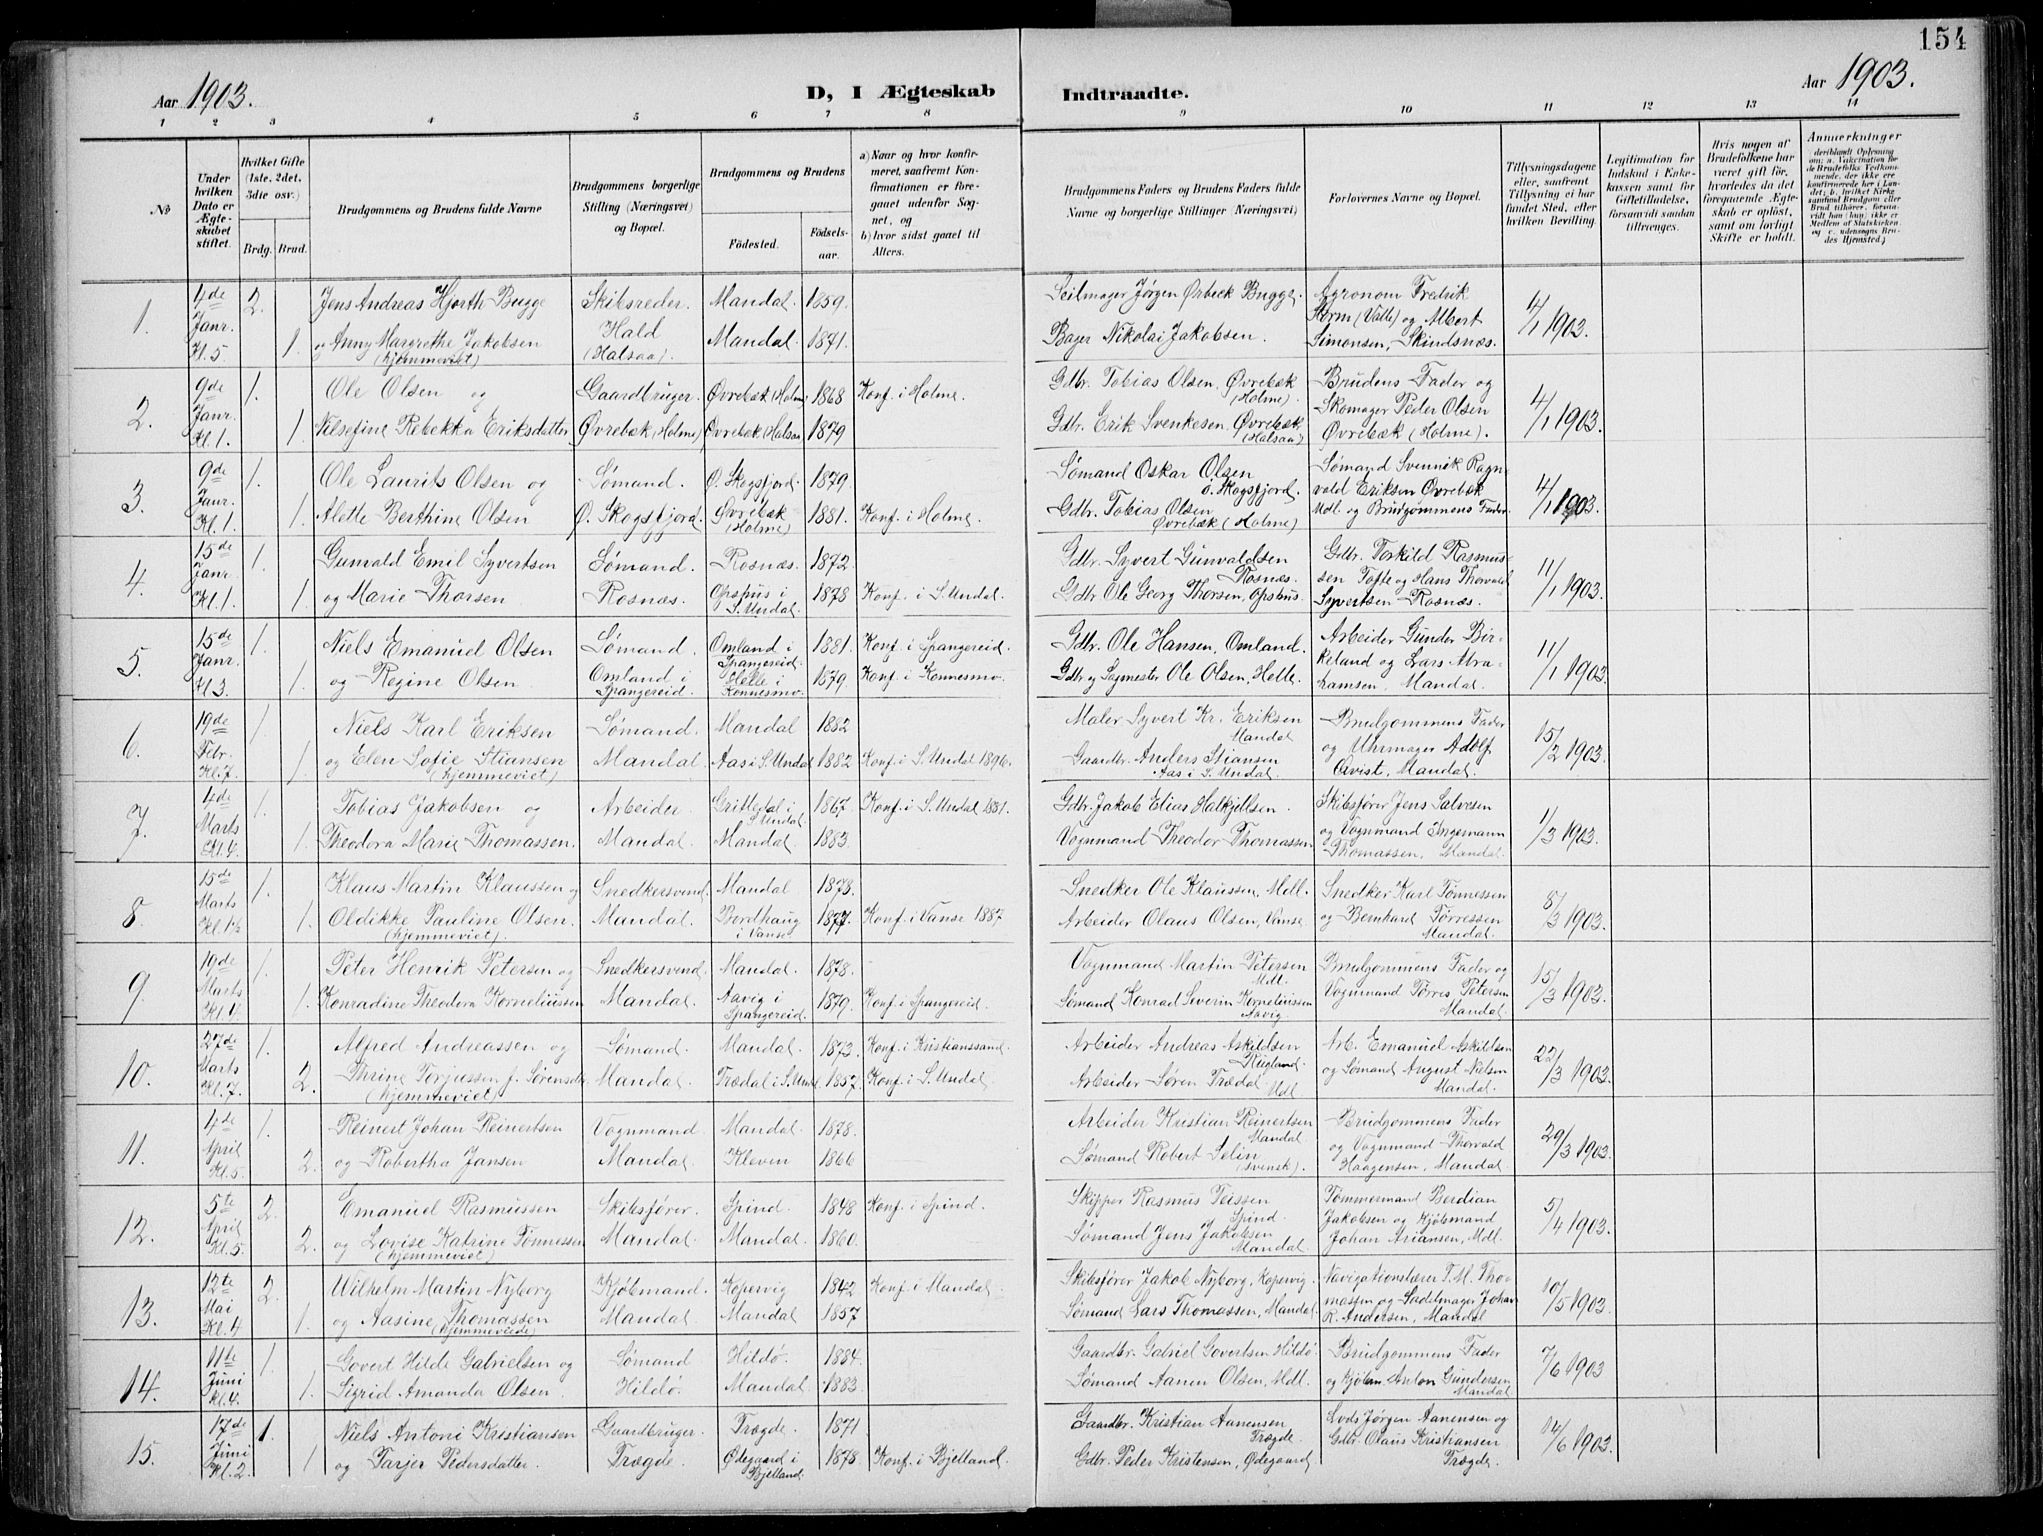 154
Aar 1903.
D, I Ægteskab
Indtraadte.
Aar 1903.
1 2 3 4 5 6 7 8 9 10 11 12 13 14
№
Under hvilken Dato er Ægteskabet stiftet.
Hvilket Gifte (1ste, 2det, 3die osv.)
Brdg. Brud.
Brudgommens og Brudens fulde Navne
Brudgommens borgerlige Stilling (Næringsvei) og Bopæl.
Brudgommens og Brudens
Födested.
Födselsaar.
a) Naar og hvor konfirmeret, saafremt Konfirmationen er foregaaet udenfor Sognet, og
b) hvor sidst gaaet til Alters.
Brudgommens Faders og Brudens Faders fulde Navne og borgerlige Stillinger (Næringsvei)
Forlovernes Navne og Bopæl.
Tillysningsdagene eller, saafremt Tillysning ei har fundet Sted, efter hvilken Bevilling
Legitimation for Indskud i Enkekassen samt for Giftetilladelse, forsaavidt saadan tiltrænges.
Hvis nogen af Brudefolkene har været gift för, hvorledes da det foregaaende Ægteskab er oplöst, samt om lovligt Skifte er holdt.
Anmerkninger
1. 4de Janr. Kl. 5 2. Jens Andreas Hjorth Bugge Skibsreder. Mandal. 1859. Seilmager Jørgen Ørbeck Bugge. Agronom Fredrik 4/1 1903.
1. og Anny Margrethe Jakobsen Hald Mandal 1871. Bager Nikolai Jakobsen. Storm (Valle) og Albert
(hjemmeviet) (Halsaa). Simonsen, Skindsnæs.
2. 9de Janr. Kl. 1. 1. Ole Olsen og Gaardbruger. Øvrebæk (Holme) 1868 Konf. i Holme. Gdbr. Tobias Olsen, Øvrebæk (Holme) Brudens Fader og 4/1 1903.
1 Nilsefine Rebekka Eriksdatter Øvrebæk (Holme) Øvrebæk (Halsaa) 1879 Gdbr. Erik Svenkesen, Øvrebæk (Halsaa) Skomager Peder Olsen
Øvrebæk (Holme).
3. 9de Janr. Kl. 1. 1. Ole Laurits Olsen og Sømand. Ø. Skogsfjord 1879. Sømand Oskar Olsen Ø. Skogsfjord. Sømand Svennik Ragn- 4/1 1903.
1. Alette Berthine Olsen Ø. Skogsfjord. Øvrebæk (Holme) 1881. Konf. i Holme. Gdbr. Tobias Olsen Øvrebæk (Holme) vald Eriksen Øvrebæk
Mdl. og Brudgommens Fader.
4. 15de Janr. Kl. 1. 1. Gunvald Emil Syvertsen Sømand. Rosnæs. 1872. Gdbr. Syvert Gunvaldsen Rosnæs. Gdbr. Torkild Rasmus- 11/1 1903.
1. og Marie Thorsen Rosnæs. Opshus i S. Undal. 1878 Konf. i S. Undal. Gdbr Ole Georg Thorsen, Opshus. sen Tofte og Hans Thorvald
Syvertsen Rosnæs.
5. 15de Janr. Kl. 3. 1. Niels Emanuel Olsen Sømand. Omland i Spangereid. 1881. Konf. i Spangereid. Gdbr. Ole Hansen, Omland. Arbeider Gunder Bir- 11/1 1903
1. og Regine Olsen Omland i Spangereid. Helle i Konnesmo. 1879. Konf. i Konnesmo. Gdbr og Sagmester Ole Olsen, Helle. keland og Lars Abra-
hamsen, Mandal.
6. 19de Febr. Kl. 7. 1. Niels Karl Eriksen Sømand. Mandal 1882 Maler Syvert Kr. Eriksen Mandal Brudgommens Fader 15/2 1903.
1. og Elen Sofie Stiansen Mandal. Aas i S. Undal 1882 Konf. i S. Undal 1896. Gaardbr. Anders Stiansen Aas i S. Undal og Uhrmager Adolf
(hjemmeviet) Qvist, Mandal.
7. 4de Marts Kl. 4. 1. Tobias Jakobsen og Arbeider. Grittedal i S. Undal. 1867. Konf. i S. Undal 1881. Gdbr. Jakob Elias Halkjeldsen. Skibsfører Jens Salvesen 1/3 1903.
1. Theodora Marie Thomassen. Mandal. Mandal. 1883. Vognmand Theodor Thomassen og Vognmand Ingemann
Thomassen, Mandal.
8. 15de Marts Kl. 1½ 1. Klaus Martin Klaussen og Snedkersvend. Mandal 1878. Snedker Ole Klaussen, Mdl. Snedker Karl Tønnessen 8/3 1903.
1. Oldikke Pauline Olsen. Mandal. Bordhaug i Vanse. 1877. Konf. i Vanse 1887 Arbeider Olaus Olsen, Vanse. og Bernhard Tørressen
(hjemmeviet). Mandal.
9. 19de Marts Kl. 4. 1. Peter Henrik Petersen og Snedkersvend. Mandal. 1878. Vognmand Martin Petersen Mdl. Brudgommens Fader og 15/3 1903.
1. Konradine Theodora Korneliussen Mandal. Aavig i Spangereid. 1879. Konf. i Spangereid. Sømand Konrad Severin Korneliussen Aavig. Vognmand Tørres Petersen
Mandal.
10. 27de Marts Kl. 7. 1. Alfred Andreassen og Sømand. Mandal. 1873. Konf. i Kristianssand. Arbeider Andreas Askildsen Skugland. Arb. Emanuel Askildsen 22/3 1903.
2. Thrine Torjussen f. Sørensdtr Mandal. Trædal i S. Undal 1857. Konf. i S. Undal. Arbeider Søren Trædal Mdl og Sømand August Nielsen
(hjemmeviet) Mandal.
11. 4de April Kl. 5. 1. Reinert Johan Reinertsen Vognmand. Mandal. 1878. Arbeider Kristian Reinertsen Mandal. Brudgommens Fader 29/3 1903.
2. og Robertha Jansen Mandal. Kleven 1866 Sømand Robert Selin (svensk). og Vognmand Thorvald
Haagensen, Mandal.
12. 5te April Kl. 5. 2. Emanuel Rasmussen Skibsfører. Spind. 1848 Konf. i Spind. Skipper Rasmus Teissen Spind. Tømmermand Berdian 5/4 1903.
2. og Lovise Katrine Tönnessen Mandal. Mandal. 1860. Sømand Jens Jakobsen Mandal. Jakobsen og Kjøbmand
(hjemmeviet) Johan Ariansen, Mdl.
13. 12te Mai Kl. 4 2. Wilhelm Martin Nyborg Kjøbmand. Kopervig 1842 Konf. i Mandal. Skibsfører Jakob Nyborg, Kopervig. Navigationslærer T. M. Tho- 10/5 1903.
1. og Aasine Thomassen Mandal. Mandal 1857 Sømand Lars Thomassen, Mandal. massen og Sadelmager Johan
(hjemmeviede) R. Andersen, Mandal
14. 11te Juni Kl. 4. 1. Govert Hilde Gabrielsen og Sømand Hildø. 1884. Gaardbr. Gabriel Govertsen Hildø. Brudgommens Fader 7/6 1903
1. Sigrid Amanda Olsen. Hildø. Mandal. 1883. Sømand Aanen Olsen, Mdl. og Kjøbm. Anton Gundersen
Mandal
15. 17de Juni Kl. 2. 1. Niels Antoni Kristiansen Gaardbruger. Trægde. 1871 Gaardbr. Kristian Aanensen Trægde. Lods Jørgen Aanensen og 14/6 1903.
1 og Tarjer Pedersdatter. Trægde. Ødegaard i Bjelland. 1878. Konf. i Bjelland. Gdbr. Peder Kristensen, Ødegaard. Gdbr. Olaus Kristiansen
Trægde.